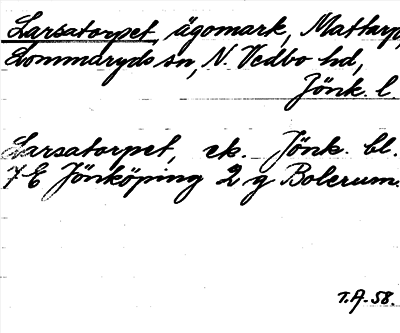 Larsatorpet, ägomark, Mattarp,
Lommaryds sn, N. Vedbo hd,
Jönk. l.
Larsatorpet, ek. Jönk. bl.
7 E Jönköping 2 g Bolerum.
T.A. 58.